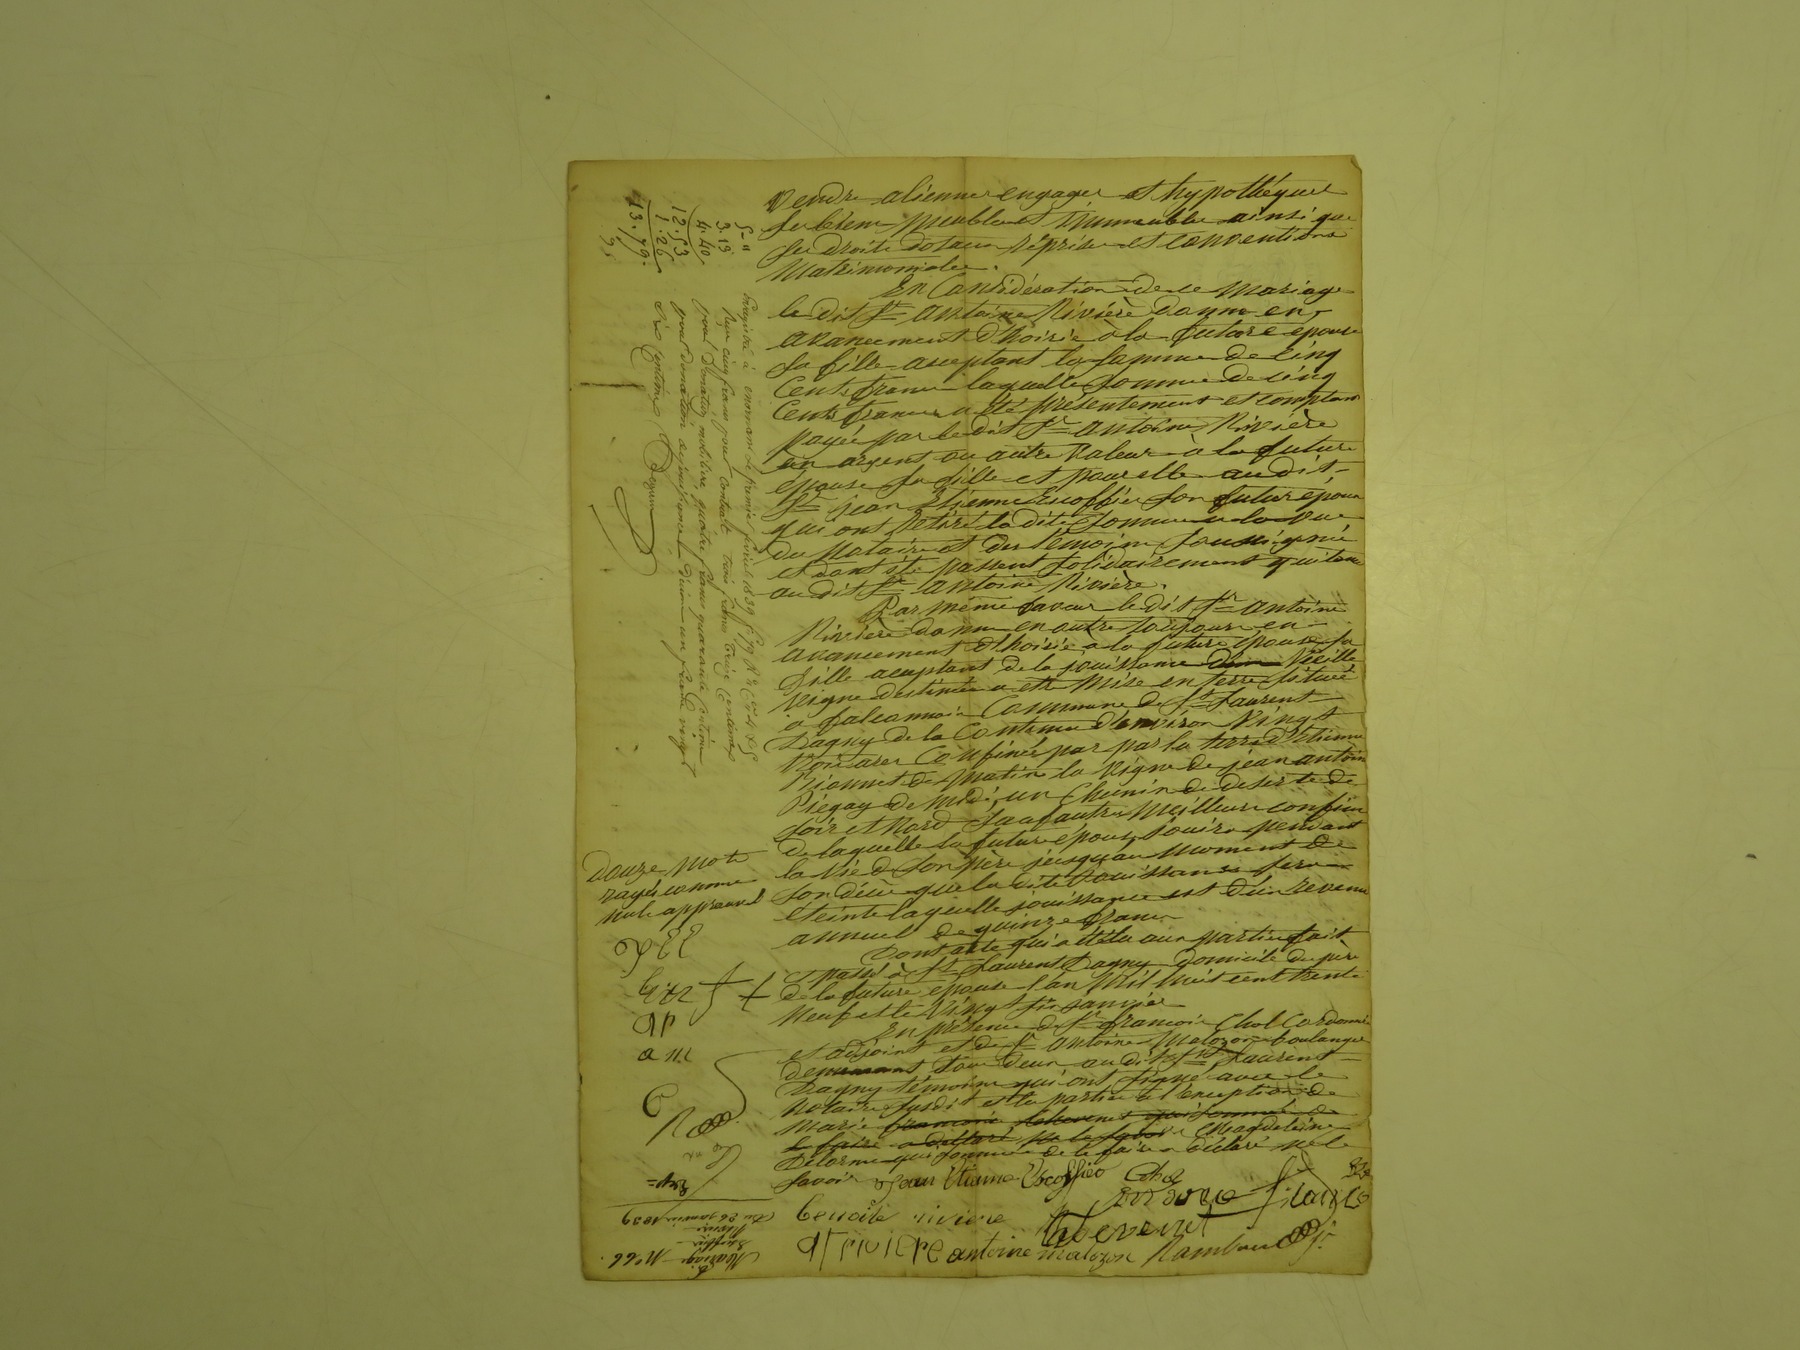 vendre aliener engager et hypothéquer
ses biens meubles et immeubles ainsi que
ses droits dotaux reprises et conventions
Matrimoniales.
En Considération de ce mariage
le dit Sr antoine Rivière donne en
avancement d'hoirie à la future épouse
sa fille acceptant la somme de cinq
Cents francs laquelle somme de cinq
Cents francs a été présentement et comptant
payée par le dit Sr antoine Rivière
en argent ou autre valeur à la future
épouse sa fille et pour elle au dit
Sr jean Etienne Escoffier son futur époux
qui ont retiré la dite somme a la vue
du Notaire et des témoins soussignés
et dont ils passent solidairement quitance
au dit Sr antoine Rivière.
Par même faveur le dit Sr antoine
Rivière donne en outre toujours en
avancement d'hoirie a la future épouse sa
fille aceptant de la jouissance d'une vieille
vigne destinée a etre mise en terre située
à Commune de St Laurent
Dagny de la Contenue d'environ vingt
trois ares Confinée par par la terre d'Etienne
de matin la vigne de jean antoine
Piégay de midi, un chemin de desserte de
soir et Nord sauf autres meilleurs confins
de laquelle la future épouse jouira pendant
la vie de son père jusqu'au moment de
son décès que la dite jouissance sera
éteinte laquelle jouissance est d'un revenu
annuel de quinze francs
Dont acte qui a été lu aux parties fait
et passé à St Laurent Dagny domicile du père
de la future épouse l'an mil huit cent trente
neuf et le vingt six janvier
En présence de Sr françois Chol Cordonnier
et adjoint et de Sr antoine Malozon boulanger
demeurant tous deux au dit St Laurent
Dagny témoins qui ont signé avec le
Notaire susdit et les parties à l'exception de
Marie Magdeleine
Delorme qui sommée de le faire a déclaré ne le
savoir
Jean Etienne Escoffier
Chol
benoite riviere
thevenet
A riviere antoine malozon Rambaud
5-"
3.13
4.40
12.53
1.26
13.79.
Enregistré à mornant le premier février 1839
Reçu cinq francs pour contrat trois francs treize Centimes
pour Donation mobilière, quatre francs quarante Centimes
pour donation de jouissance Dixième un franc vingt
six Centimes
Douze mots
rayés comme
nuls approuvés
J.E.E
b.r
AR
a m
C
R
Exp=
Du 26 janvier 1839
Rivière
Escoffier
Mariage N° 66.